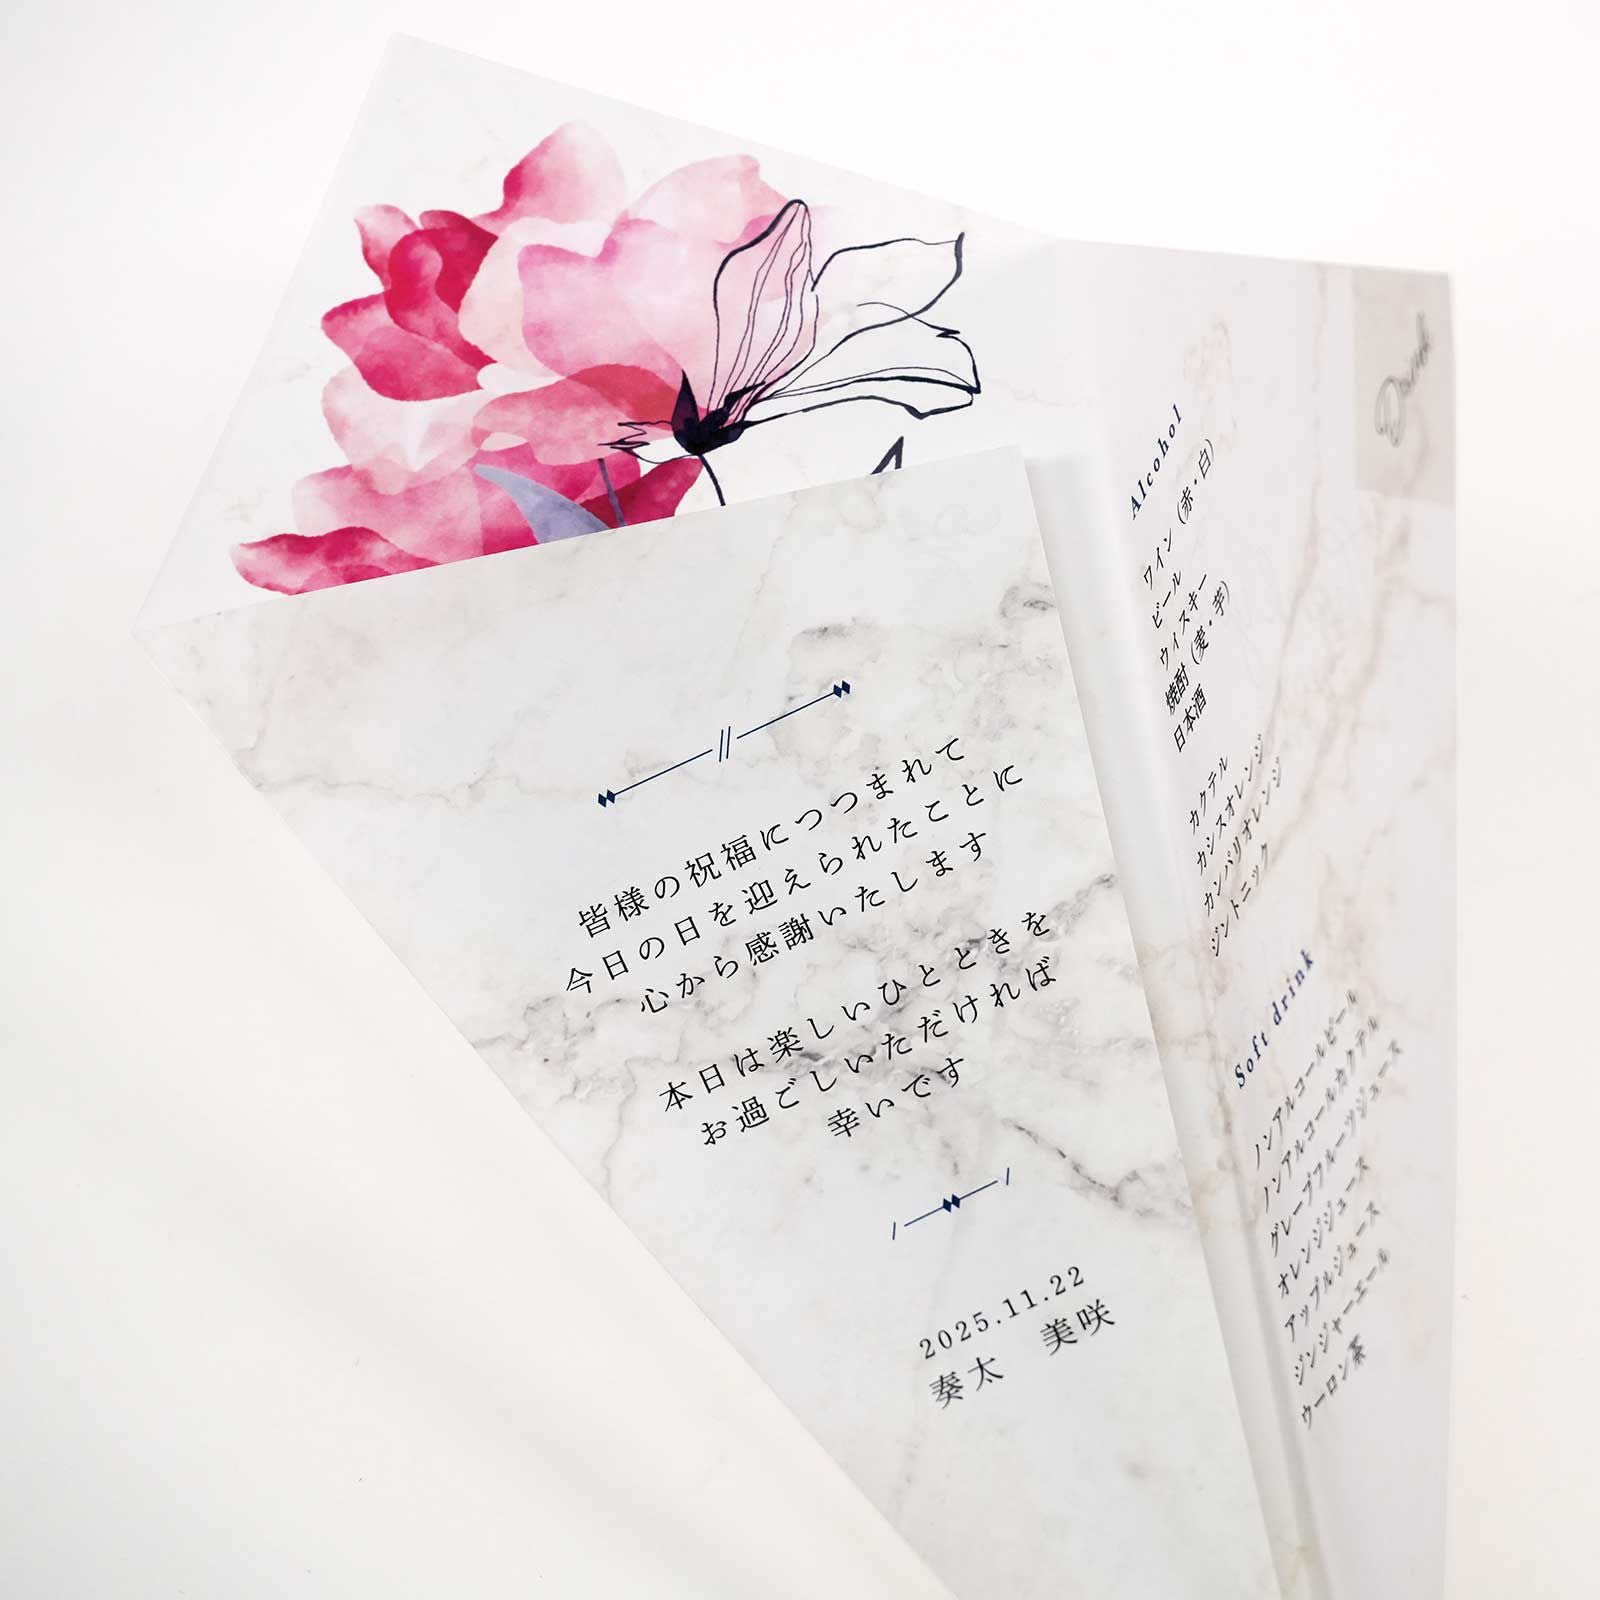 皆様の祝福につつまれて
今日の日を迎えられたことに
心から感謝いたします
本日は楽しいひとときを
お過ごしいただければ
幸いです
2025.11.22
奏太　美咲
Drink
Alcohol
ワイン（赤・白）
ビール
ウイスキー
焼酎（麦・芋）
日本酒
カクテル
カシスオレンジ
カンパリオレンジ
ジントニック
Soft drink
ノンアルコールビール
ノンアルコールカクテル
グレープフルーツジュース
オレンジジュース
アップルジュース
ジンジャーエール
ウーロン茶